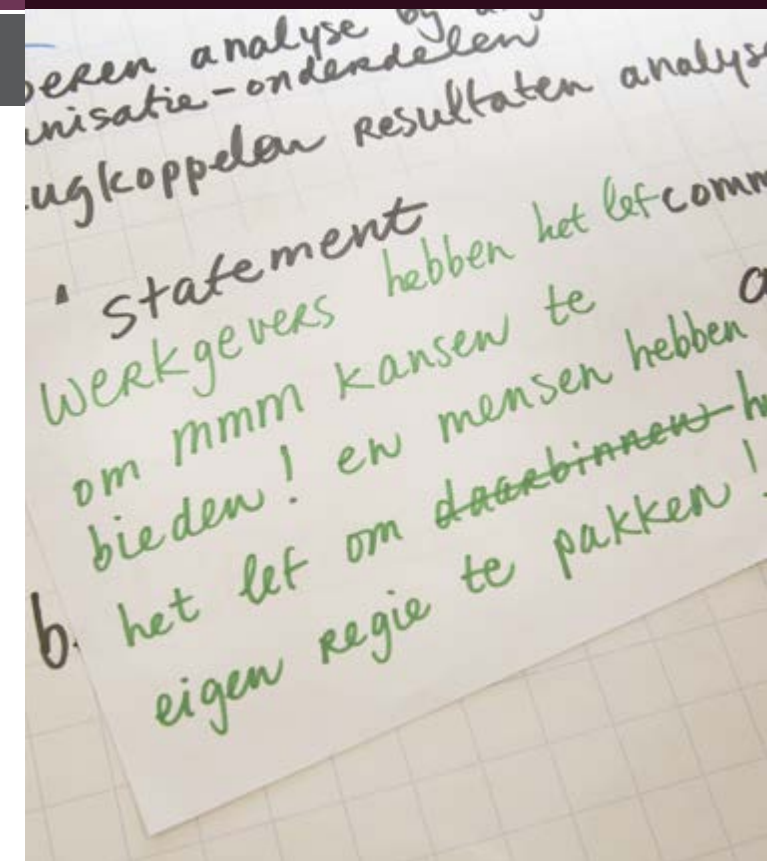 analyse
nisatie-onderdelen
ugkoppelen Resultaten analyse
Statement
Werkgevers hebben het lef comm
om mmm kansen te
bieden! en mensen hebben
het lef om daarbinnen h
eigen Regie te pakken!
b.